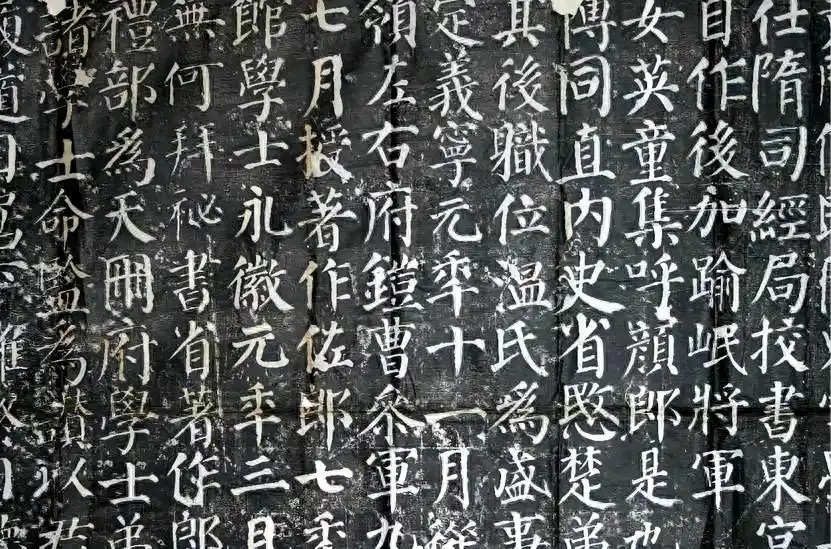 仕隋司經局挍書東宮
自作後加踰岷將軍
女英童集呼顏郎是也
博同直內史省愍楚弟
其後職位溫氏爲盛事
定義寧元年十一月從
領左右府鎧曹參軍九
七月授著作佐郎七年
館學士永徽元年三月
無何拜祕書省著作郎
禮部爲天冊府學士弟
諸學士命監爲讚以